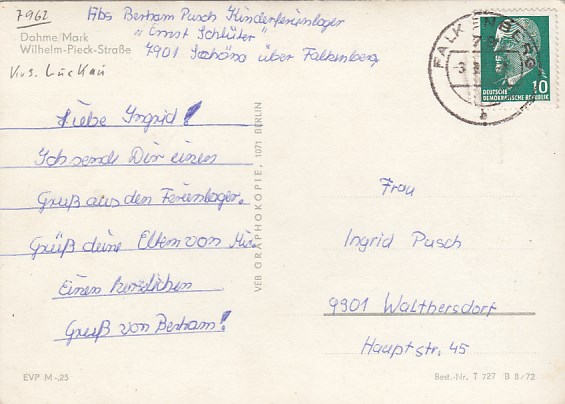 7962
Abs Bertram Pusch Kinderferienlager
"Ernst Schlüter"
7901 über Falkenberg
Dahme/Mark
Wilhelm-Pieck-Straße
Krs. Luckau
FALKENBERG
DEUTSCHE
DEMOKRATISCHE REPUBLIK
10
Liebe Ingrid!
Ich sende Dir einen
Gruß aus den Ferienlager.
Grüß deine Eltern von Mir.
Einen herzlichen
Gruß von Bertram!
VEB GRAPHOKOPIE, 1071 BERLIN
Frau
Ingrid Pusch
9901 Walthersdorf
Hauptstr. 45
EVP M -,25
Best.-Nr. T 727 B 8/72